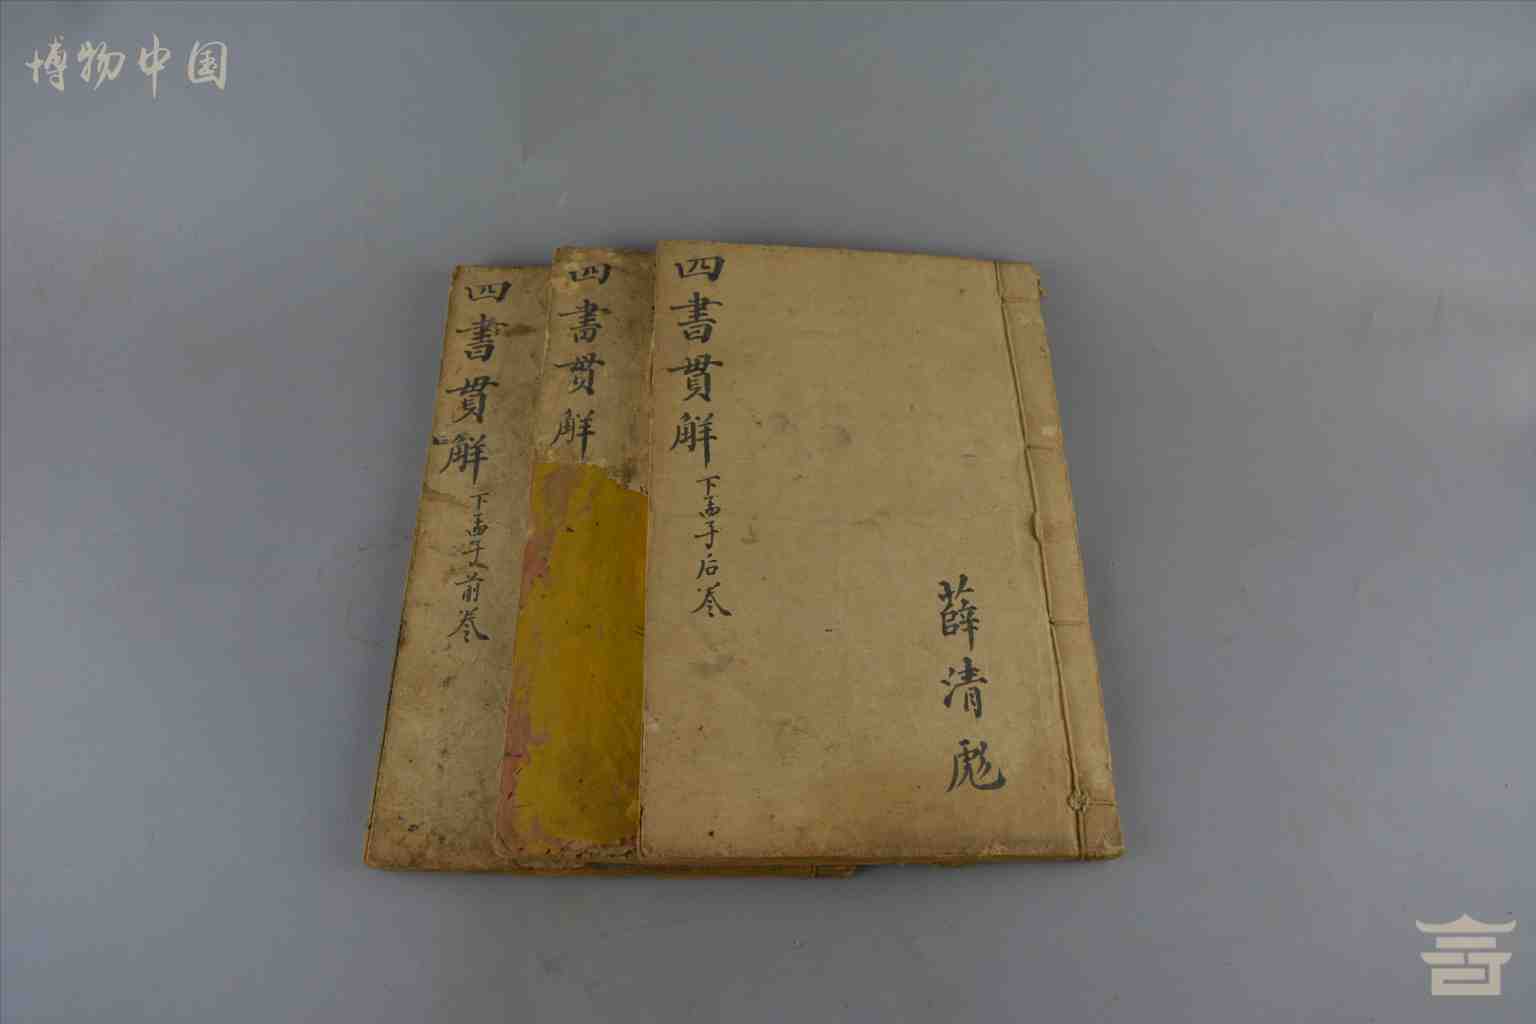 博物中国
四書貫解下孟子后卷
薛清彪
四書貫解
四書貫解下孟子前卷